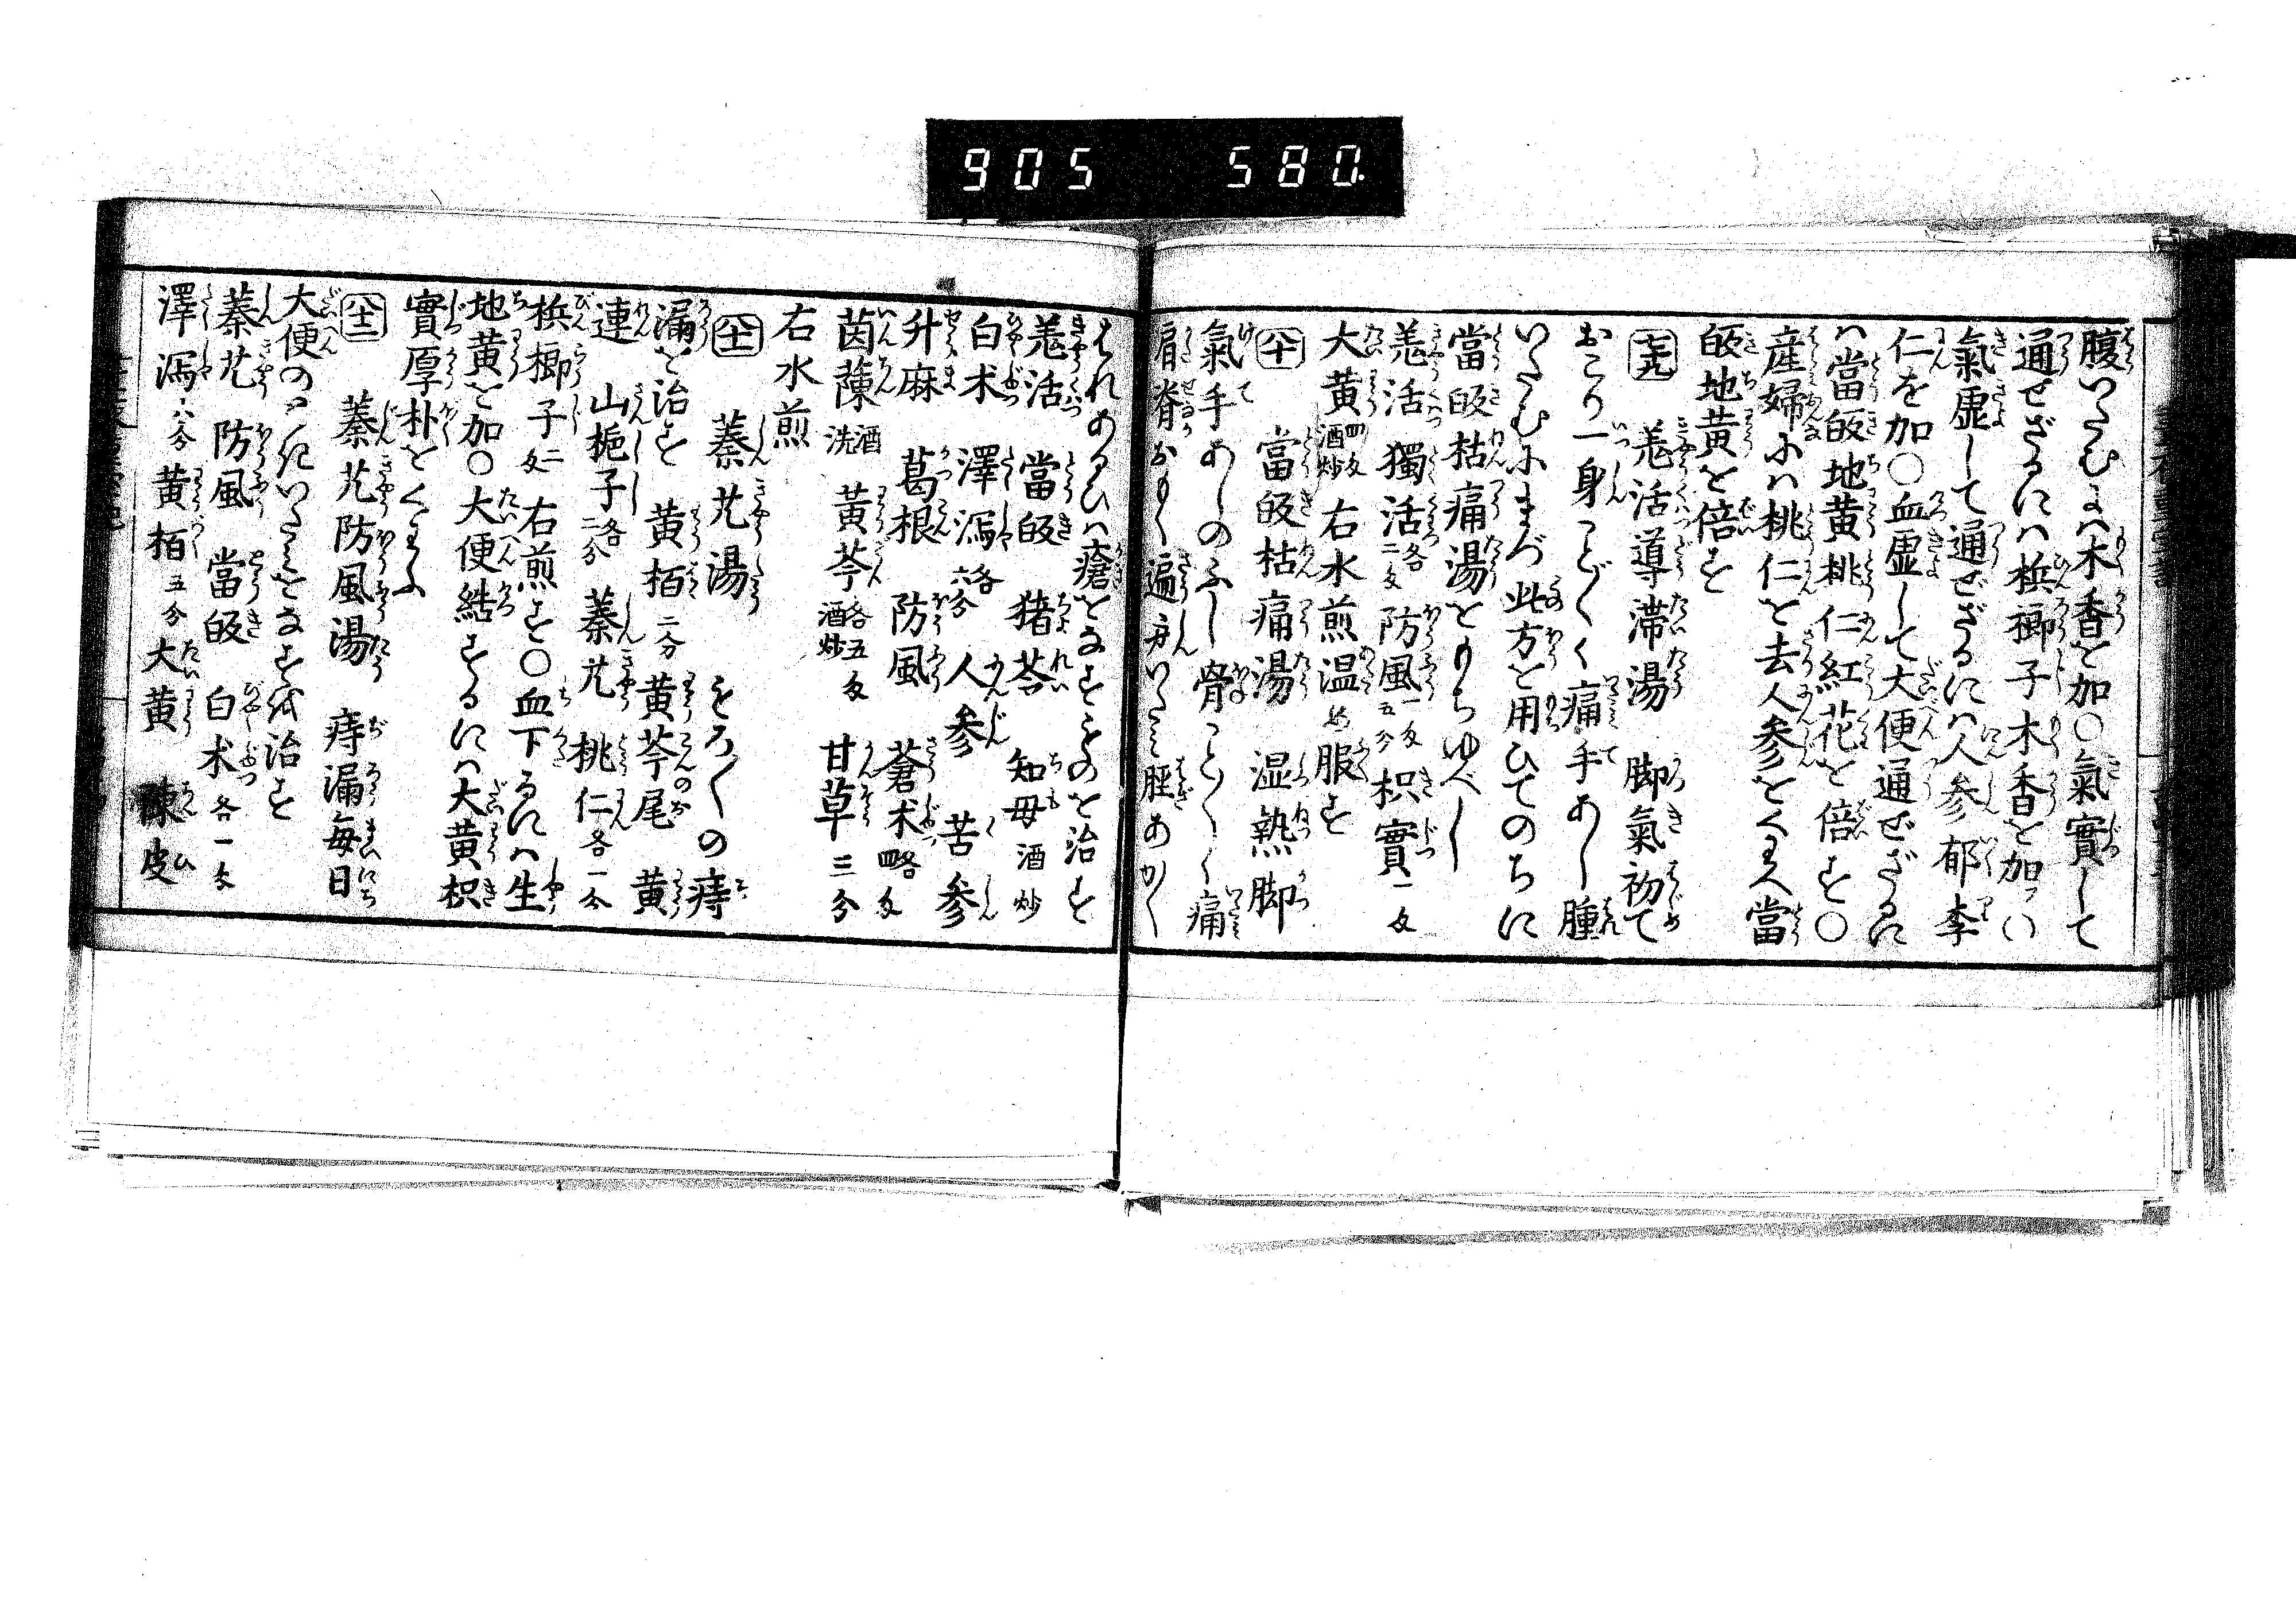 905 580
腹いたむは木香を加〇氣實して
通ぜざるには梹榔子木香を加つい
氣虚して通ぜざるには人参郁李
仁を加〇血虚して大便通ぜざるに
は當皈地黄桃仁紅花を倍す〇
産婦には桃仁を去人参をくはへ當
皈地黄を倍す
七十九 羗活導滞湯 脚氣初て
おこり一身ことごとく痛手あし腫
いたむにまづ此方を用ひてのちに
當皈拈痛湯をもちゆべし
羗活 獨活各二匁 防風一匁五分 枳實一匁
大黄四匁酒炒 右水煎温め服す
八十 當皈拈痛湯 湿熱脚
氣手あしのふし骨ことごとく痛
肩脊おもく遍身いたミ脛あかく
はれあるひは瘡をなすものを治す
羗活 當皈 猪苓 知母酒炒
白朮 澤瀉各六分 人参 苦参
升麻 葛根 防風 蒼朮各四匁
茵蔯酒洗 黄芩各五匁酒炒 甘草三分
右水煎
八十一 蓁艽湯 もろもろの痔
漏を治す 黄栢二分 黄芩尾 黄
連 山梔子各二分 蓁艽 桃仁各一分
梹榔子二匁 右煎す〇血下るには生
地黄を加〇大便結するには大黄枳
實厚朴をくはふ
八十二 蓁艽防風湯 痔漏毎日
大便のときいたミをなすを治す
蓁艽 防風 當皈 白朮各一匁
澤瀉六分 黄栢五分 大黄 陳皮